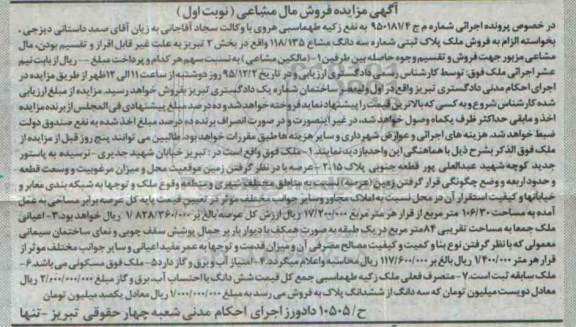 آگهی مزایده فروش مال مشاعی (نوبت اول)
در خصوص پرونده اجرائی شماره م ج ۹۵۰۱۸۱/۴ به نفع زکیه طهماسبی هروی با وکالت سجاد آقاجانی به زیان آقای صمد داستانی دیزجی،
بخواسته الزام به فروش ملک پلاک ثبتی شماره سه دانگ مشاع ۱۱۸/۱۳۵ واقع در بخش ۲ تبریز به علت غیر قابل افراز و تقسیم بودن، مال
مشاعی مزبور جهت فروش و تقسیم وجوه حاصله بین طرفین ۱- (مالکین مشاعی) به نسبت سهم هر کدام و پرداخت مبلغ --- ریال از بابت نیم
عشر اجرائی ملک فوق: توسط کارشناس رسمی دادگستری ارزیابی و در تاریخ ۹۵/۱۲/۲ روز دوشنبه از ساعت ۱۱ الی ۱۲ ظهر از طریق مزایده در
اجرای احکام مدنی دادگستری تبریز واقع در اول ولیعصر ساختمان شماره یک دادگستری تبریز بفروش خواهد رسید. مزایده از مبلغ ارزیابی
شده کارشناس شروع و به کسی که بالاترین قیمت را پیشنهاد نماید فروخته خواهد شد و ده درصد مبلغ پیشنهادی فی المجلس از برنده مزایده
اخذ و مابقی حداکثر ظرف یکماه وصول خواهد شد، در غیر اینصورت و در صورت انصراف برنده ده درصد مبلغ اخذ شده به نفع صندوق دولت
ضبط خواهد شد. هزینه های اجرائی و عوارض شهرداری و سایر هزینه ها طبق مقررات خواهد بود. طالبین می توانند پنج روز قبل از مزایده از
ملک فوق الذکر بشرح ذیل با هماهنگی این واحد بازدید نمایند. ۱- ملک فوق واقع است در: تبریز خیابان شهید جدیری- نرسیده به پاستور
جدید کوچه شهید عبدالعلی پور قطعه جنوبی پلاک ۱۵ ۲- عرصه با در نظر گرفتن زمین موقعیت محل و میزان مرغوبیت و وسعت قطعه
و حدود اربعه و وضع چگونگی قرار گرفتن زمین (عرصه) نسبت به مناطق مختلف شهری و منطقه وقوع ملک و توجها به شبکه بندی معابر و
خیابانها و کیفیت استقرار آن در محل نسبت به املاک مجاور وسایر جوانب مختلف موثر در تعیین قیمت پایه کل عرصه برابر مساحی به عمل
آمده به مساحت ۱۰۶/۳۰ متر مربع از قرار هر متر مربع ۱۷/۲۰۰/۰۰۰ ریال ارزش کل عرصه بالغ بر ۱/۸۲۸/۳۶۰/۰۰۰ ریال خواهد بود. ۳- اعیانی
ملک جمعا به مساحت تقریبی ۸۴ متر مربع در یک طبقه به صورت همکف با دیوار بار بر جمال پوشش سقف چوبی و نمای ساختمان سیمانی
معمولی که با نظر گرفتن نوع بنا و کمیت و کیفیت مصالح مصرفی آن و میزان قدمت و توجها به عمر مفید اعیانی و سایر جوانب مختلف موثر از
قرار هر متر ۱/۴۰۰/۰۰۰ ریال بالغ بر ۱۱۷/۶۰۰/۰۰۰ ریال محاسبه و اعلام میگردد ۴- امتیاز آب و برق و گاز دارد ۵- ملک فوق مسکونی می باشد. ۶-
ملک سابقه ثبت است. ۷- متصرف فعلی ملک زکیه طهماسبی جمع کل قیمت شش دانگ با احتساب آب، برق و گاز مبلغ ۲/۰۰۰/۰۰۰/۰۰۰ ریال
معادل دویست میلیون تومان که سه دانگ از ششدانگ پلاک به فروش می رسد به مبلغ ۱/۰۰۰/۰۰۰/۰۰۰ ریال معادل یکصد میلیون تومان
ح/۱۰۵۰۵ دادورز اجرای احکام مدنی شعبه چهار حقوقی تبریز - تنها